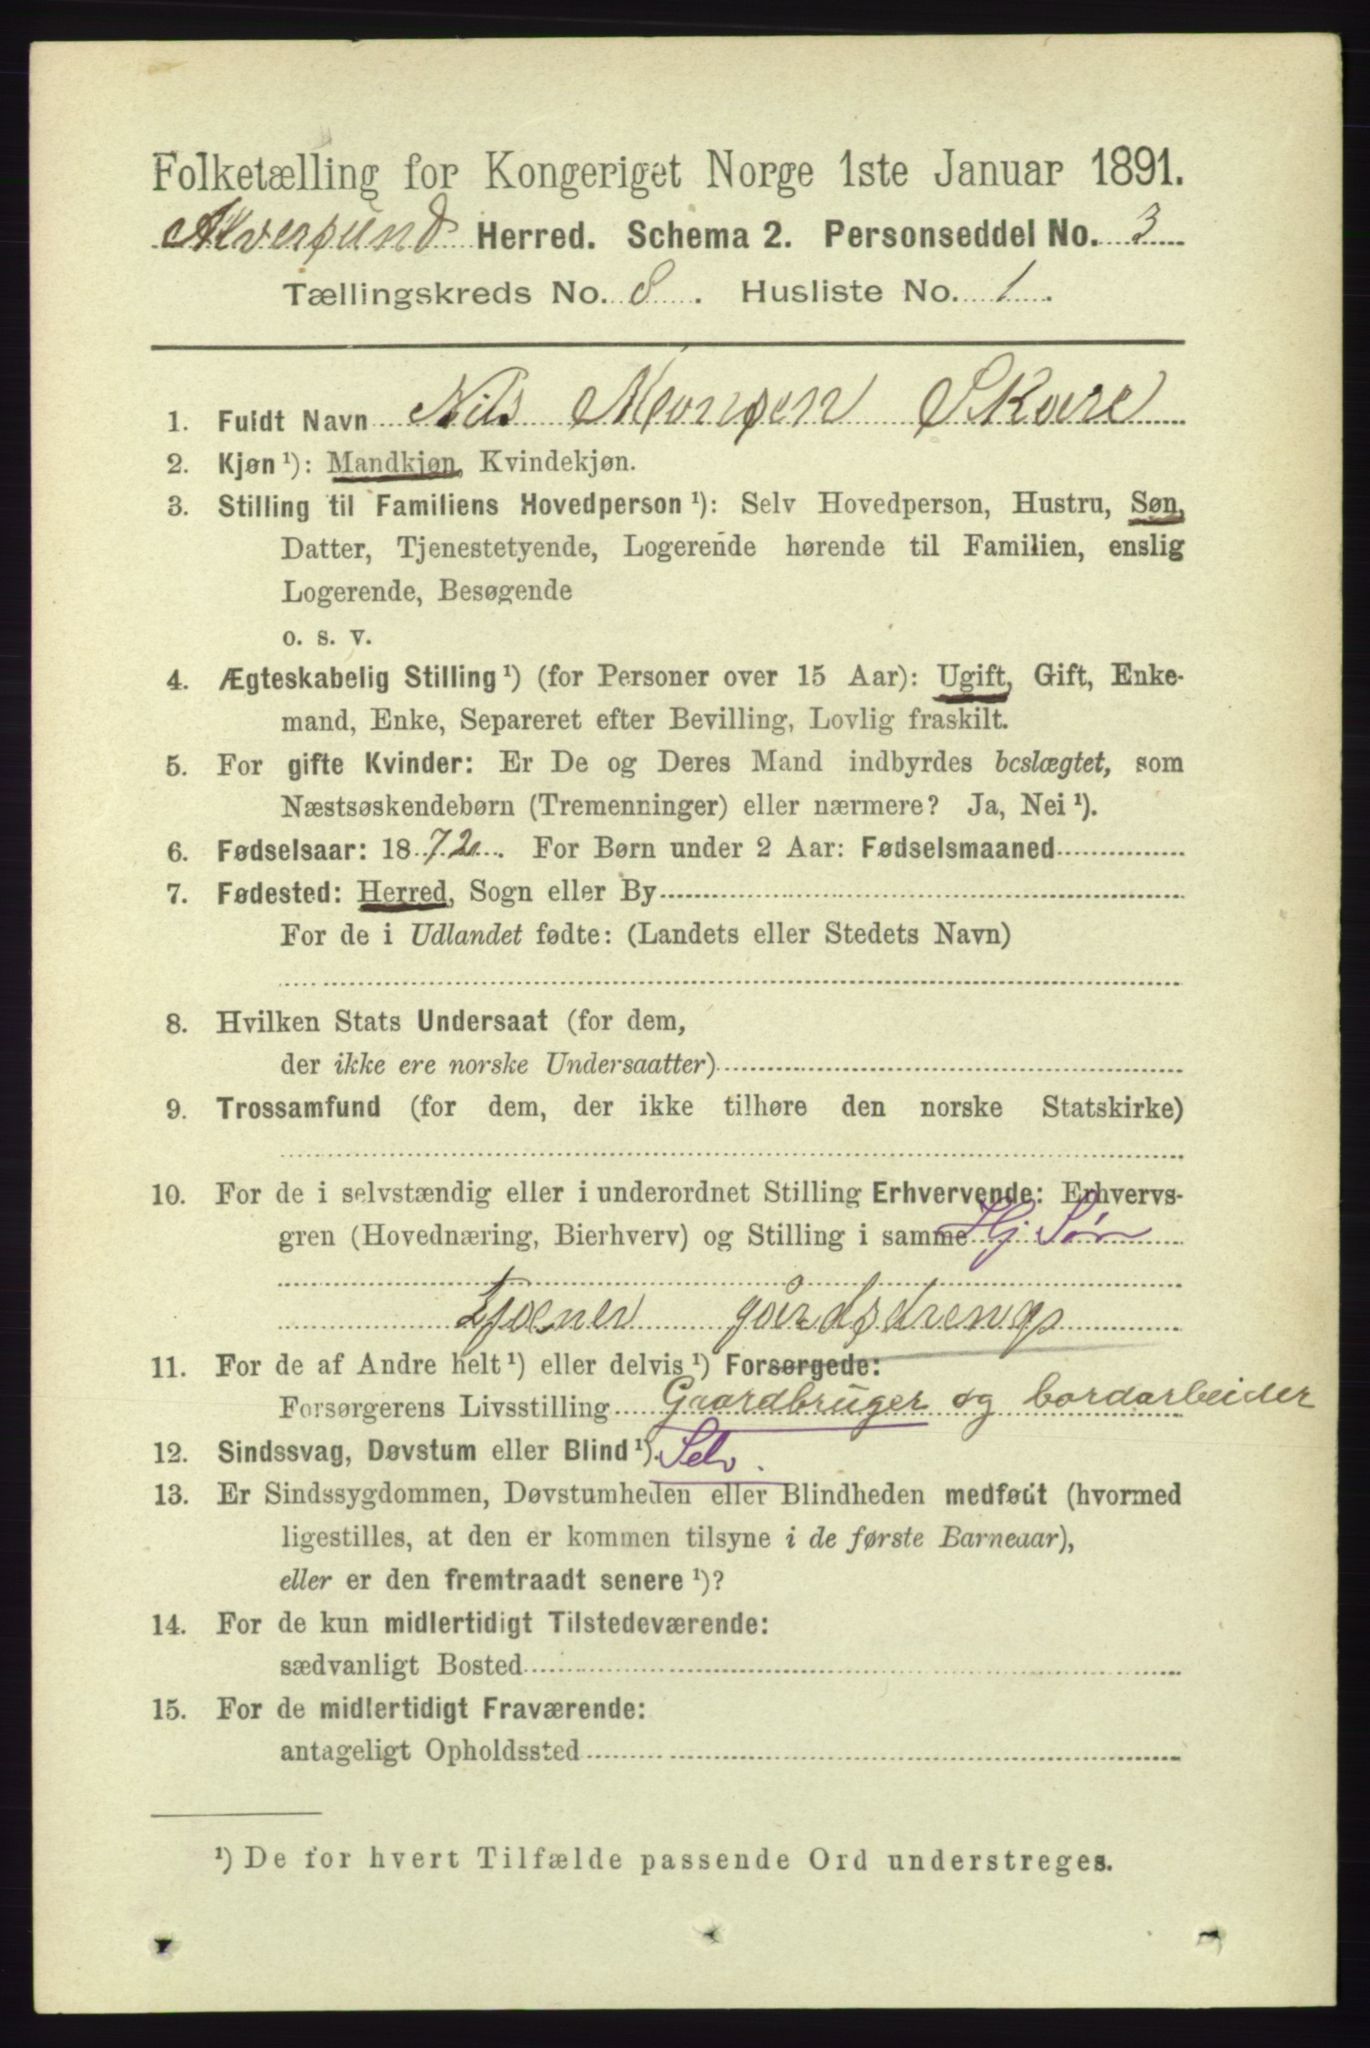 Folketælling for Kongeriget Norge 1ste Januar 1891.
Alversund Herred. Schema 2. Personseddel No. 3
Tællingskreds No. 8. Husliste No. 1.
1. Fuldt Navn Nils Monsen Skare
2. Kjøn ¹): Mandkjøn, Kvindekjøn.
3. Stilling til Familiens Hovedperson ¹): Selv Hovedperson, Hustru, Søn,
Datter, Tjenestetyende, Logerende hørende til Familien, enslig
Logerende, Besøgende
o. s. v.
4. Ægteskabelig Stilling ¹) (for Personer over 15 Aar): Ugift, Gift, Enke-
mand, Enke, Separeret efter Bevilling, Lovlig fraskilt.
5. For gifte Kvinder: Er De og Deres Mand indbyrdes beslægtet, som
Næstsøskendebørn (Tremenninger) eller nærmere? Ja, Nei ¹).
6. Fødselsaar: 1872. For Børn under 2 Aar: Fødselsmaaned
7. Fødested: Herred, Sogn eller By
For de i Udlandet fødte: (Landets eller Stedets Navn)
8. Hvilken Stats Undersaat (for dem,
der ikke ere norske Undersaatter)
9. Trossamfund (for dem, der ikke tilhøre den norske Statskirke)
10. For de i selvstændig eller i underordnet Stilling Erhvervende: Erhvervs-
gren (Hovednæring, Bierhverv) og Stilling i samme Hj Søn
tjoener gårdsdrengs
11. For de af Andre helt ¹) eller delvis ¹) Forsørgede:
Forsørgerens Livsstilling Gaardbruger og bordarbeider
12. Sindssvag, Døvstum eller Blind ¹). Selv.
13. Er Sindssygdommen, Døvstumheden eller Blindheden medfødt (hvormed
ligestilles, at den er kommen tilsyne i de første Barneaar),
eller er den fremtraadt senere ¹)?
14. For de kun midlertidigt Tilstedeværende:
sædvanligt Bosted
15. For de midlertidigt Fraværende:
antageligt Opholdssted
¹) De for hvert Tilfælde passende Ord understreges.